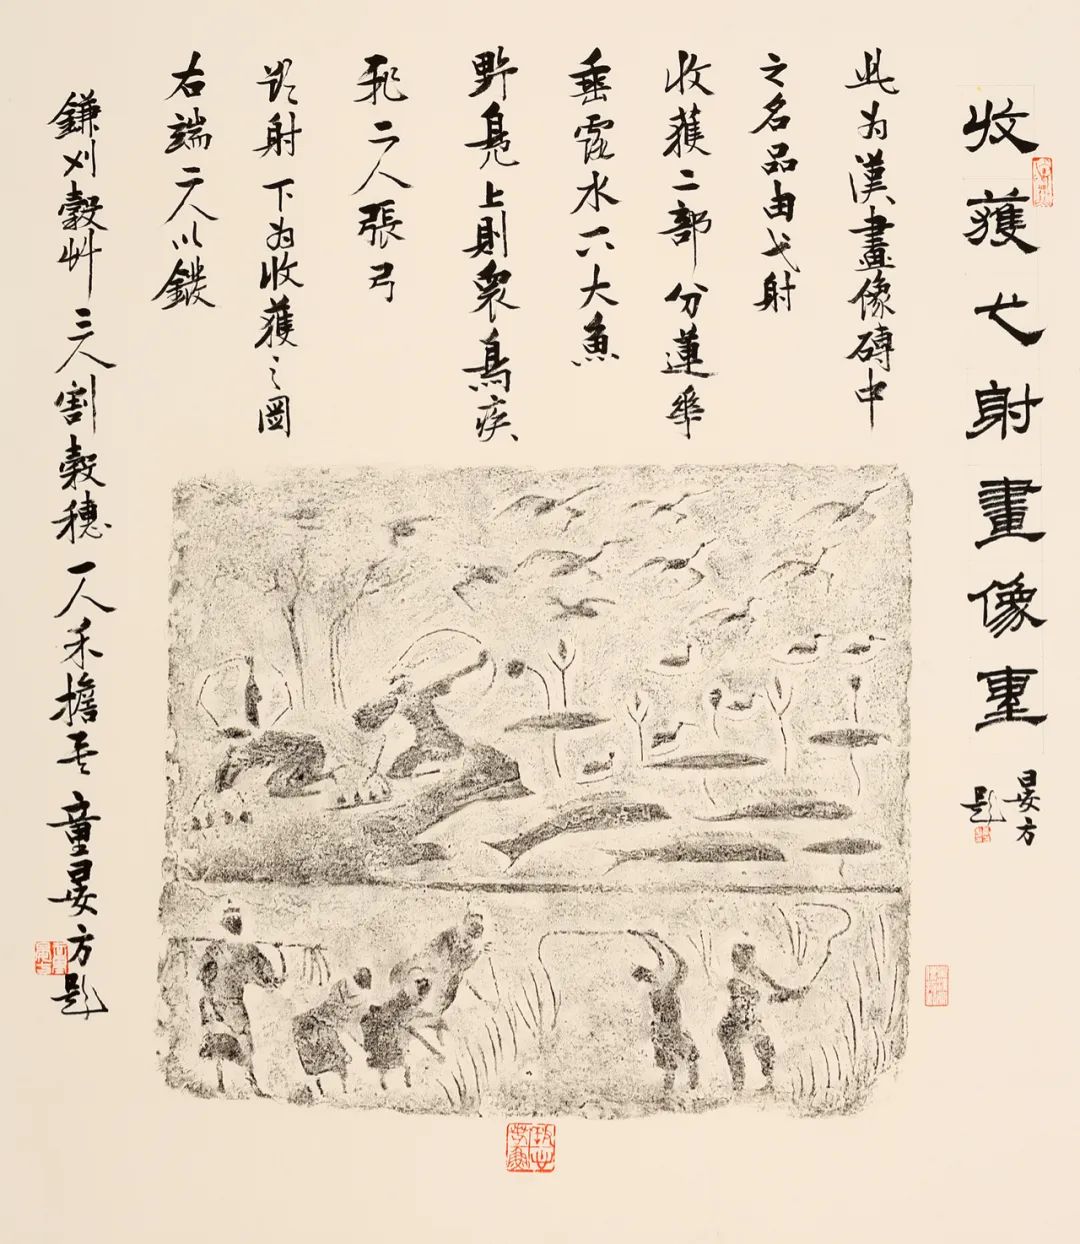 收獲弋射畫像重
晏方
題
此为漢畫像磚中
之名品由弋射
收獲二部分蓮華
垂露水下大魚
野鳧上則衆鳥疾
飛二人張弓
射下为收獲之圖
右端二人以鏺
鐮刈穀艸三人割穀穗一人禾擔童晏方題